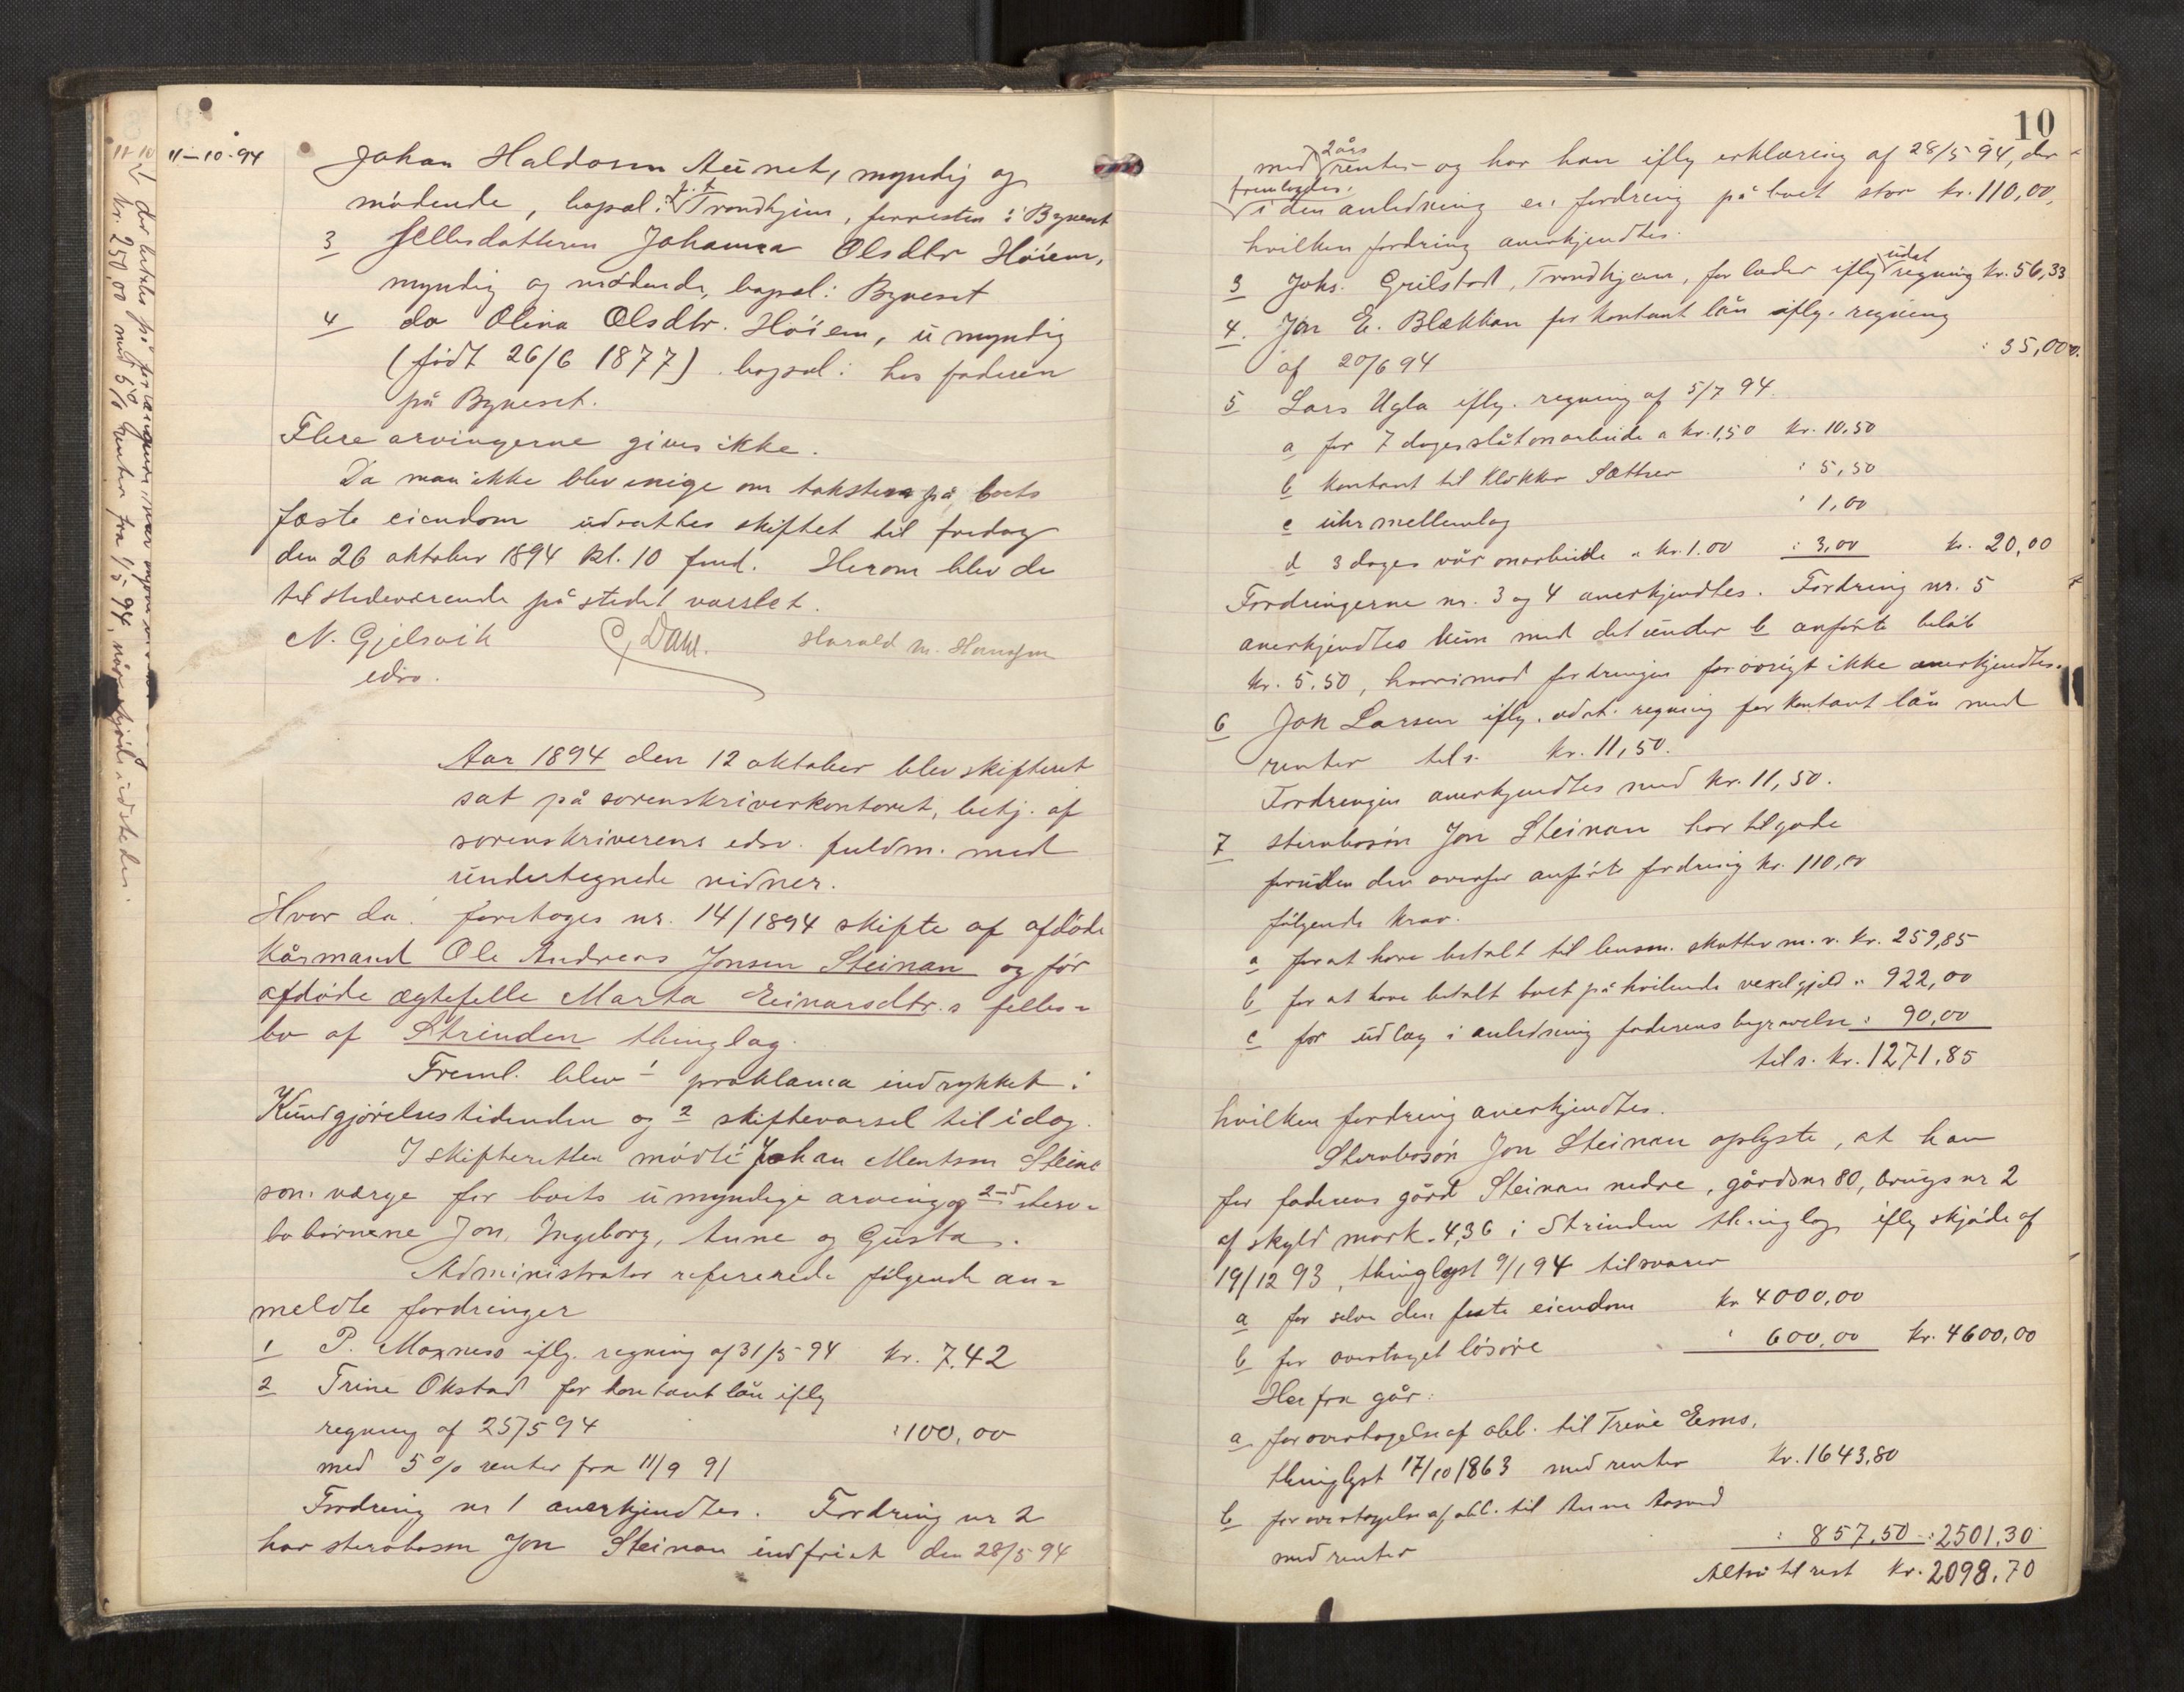 11-10-94
Johan Haldosen Aunet, myndig og
mødende, bopæl: p.t. Trondhjem, forresten i Bynesset
3 Sellesdatteren Johanna Olsdtr Høiem,
myndig og mødende, bopæl: Byneset
4 do Olina Olsdtr. Høiem, umyndig
(født 26/6 1877) bopæl: hos faderen
på Byneset.
Flere arvingerne gives ikke.
Da man ikke blev enige om taksten på boets
faste eiendom udsattes skiftet til fredag
den 26 oktober 1894 kl. 10 fmd. Herom blev de
tilstedeværende på stedet varslet.
N. Gjelsvik C. Dahl. Harald M. Hansen
edsv.
Aar 1894 den 12 oktober blev skifteret
sat på sorenskriverkontoret, betj. af
sorenskriverens edsv. fuldm. med
undertegnede vidner.
Hvor da: foretoges nr. 14/1894 skifte af afdøde
kårmand Ole Andreas Jonsen Steinan og før
afdøde ægtefelle Marta Einarsdtr.s felles=
bo af Strinden thinglag.
Freml. blev 1 proklama indrykket i
Kundgjørelsestidenden og 2 skiftevarsel til idag.
I skifteretten mødte Johan Mentsen Steine
som værge for boets umyndige arving og sterv=
bobørnene Jon, Ingeborg, Anne og Gusta.
Administrator refererede følgende an=
meldte fordringer
1 P. Moxness iflg. regning af 31/5 94 kr. 7.42
2 Trine Okstad for kontant lån iflg
regning af 25/5 94 : 100,00
med 5% renter fra 11/9 91
Fordring nr 1 anerkjendtes. Fordring nr 2
har stervbosøn Jon Steinan indfriet den 28/5 94
10
med 2 års renter og har han iflg erklæring af 28/5 94, der
fremlagdes, i den anledning en fordring på boet stor kr. 110,00,
hvilken fordring anerkjendtes.
3 Johs. Grilstad, Trondhjem, for læder iflg udat regning kr. 56,33
4. Jon E. Blækkan for kontant lån iflg. regning
af 20/6 94 : 35,00
5 Lars Ugla iflg. regning af 5/7 94.
a for 7 dages slåtonarbeide a kr. 1,50 kr. 10.50
b kontant til klokker Sættrer : 5,50
c uhrmellemlag : 1,00
d 3 dages våronarbeide a kr. 1.00 : 3,00 kr. 20,00
Fordringerne nr. 3 og 4 anerkjendtes. Fordring nr. 5
anerkjendtes kun med det under b anførte beløb
kr. 5.50, hvorimod fordringen forøvrigt ikke anerkjendtes.
6 Jon Larsen iflg. udat. regning for kontant lån med
renter tils. kr. 11,50.
Fordringen anerkjendtes med kr. 11,50.
7 stervbosøn Jon Steinan har tilgode
foruden den ovenfor anførte fordring kr. 110,00
følgende krav.
a for at have betalt til lensm. skatter m.v. kr. 259,85
b for at have betalt boet påhvilende vexelgjeld " 922,00
c for udlæg i anledning faderens begravelse : 90,00
tils. kr. 1271.85
hvilken fordring anerkjendtes.
Stervbosøn Jon Steinan oplyste, at han
for faderens gård Steinan nedre, gårdsnr 80, brugsnr 2
af skyld mark 4,36 i Strinden thinglag iflg skjøde af
19/12 93, thinglyst 9/1 94 tilsvarer
a for selve den faste eiendom kr 4000,00
b for overtaget løsøre : 600,00 kr. 4600,00
Herfra går:
a for overtagelse af obl. til Trine Eems.
thinglyst 17/10 1863 med renter kr. 1643,80
b for overtagelse af obl. til Anne Aasved
med renter : 857,50 : 2501,30
Altså til rest kr. 2098.70